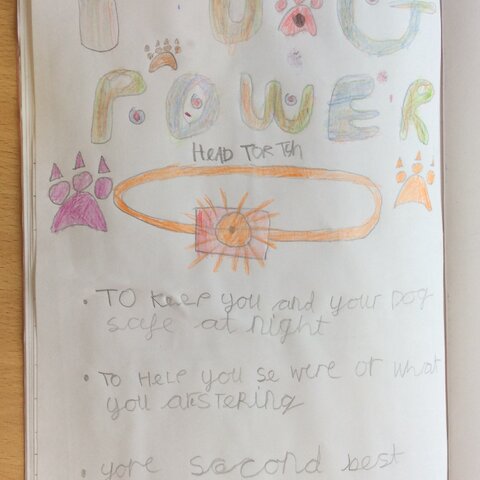 POWER
HEAD TORTch
• TO Keep you and your DOG
safe at night
• TO HELP you se were or what
you
• yore second best